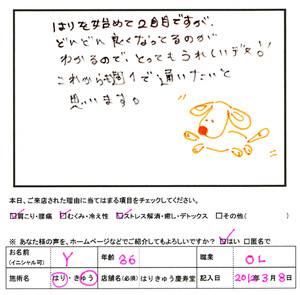 はりを始めて2回目ですが、
どんどん良くなってるのが
わかるので、とってもうれしいデス!!
これからも週1で通いたいと
思います。
本日、ご来店された理由に当てはまる項目をチェックしてください。
☑肩こり・腰痛 ☑むくみ・冷え性 ☑ストレス解消・癒し・デトックス □その他( )
※ あなた様の声を、ホームページなどでご紹介してもよろしいですか? ☑はい □匿名で
お名前 (イニシャル可) Y 年齢 36 職業 OL
施術名 はり・きゅう 店舗名(必須) はりきゅう慶寿堂 記入日 2012年3月8日